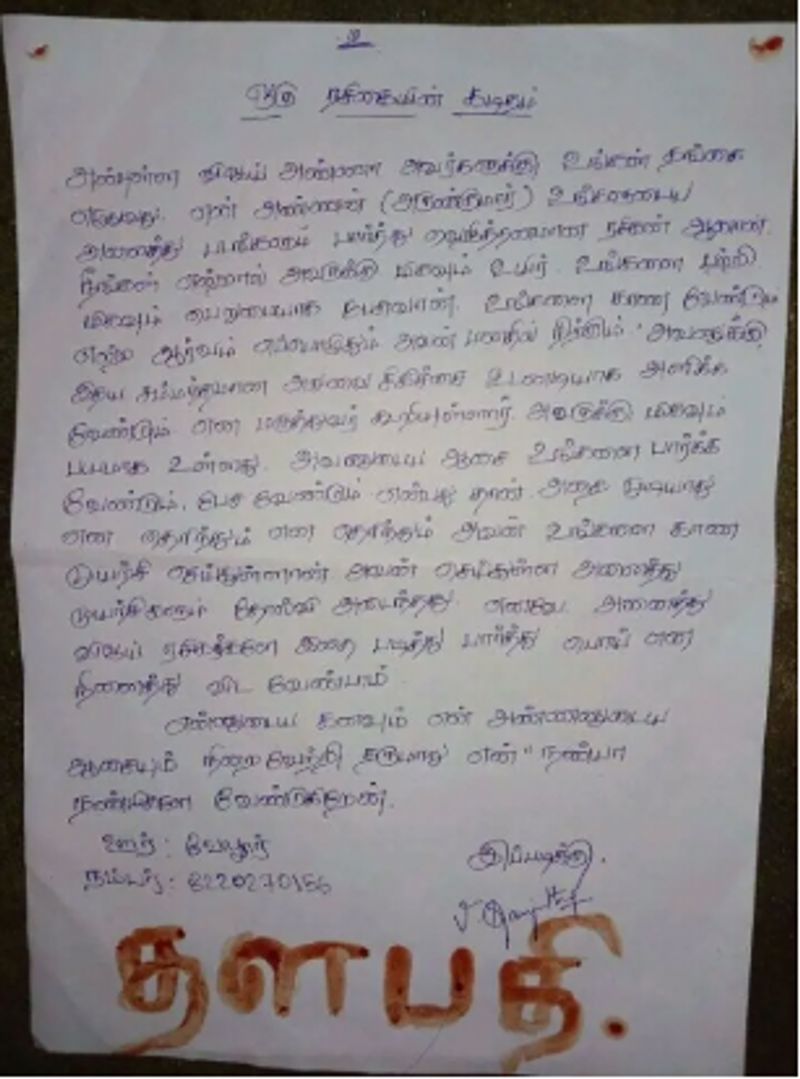 உ
ஒரு ரசிகையின் கடிதம்
அன்புள்ள விஜய் அண்ணா அவர்களுக்கு உங்கள் தங்கை
எழுதுவது. என் அண்ணன் (அருண்குமார்) உங்களுடைய
அனைத்து படங்களும் பார்த்து வெறித்தனமான ரசிகன் ஆனான்.
நீங்கள் என்றால் அவருக்கு மிகவும் உயிர். உங்களை பற்றி
மிகவும் பெருமையாக பேசுவான். உங்களை காண வேண்டும்
என்ற ஆர்வம் எப்பொழுதும் அவன் மனதில் நிற்கும். அவனுக்கு
இதய சம்மந்தமான அறுவை சிகிச்சை உடனடியாக அளிக்க
வேண்டும் என மருத்துவர் கூறியுள்ளார். அவருக்கு மிகவும்
பயமாக உள்ளது. அவனுடைய ஆசை உங்களை பார்க்க
வேண்டும், பேச வேண்டும் என்பது தான். அதை முடியாது
என தெரிந்தும் என தெரிந்தும் அவன் உங்களை காண
முயற்சி செய்துள்ளான் அவன் செய்துள்ள அனைத்து
முயற்சிகளும் தோல்வி அடைந்தது. எனவே அனைத்து
விஜய் ரசிகர்களே இதை படித்து பார்த்து பொய் என
நினைத்து விட வேண்டாம்
என்னுடைய கனவும் என் அண்ணனுடைய
ஆசையும் நிறைவேற்றி தருமாறு என் "நண்பா
நண்பிகளை வேண்டுகிறேன்.
ஊர் : வேலூர்
இப்படிக்கு,
நம்பர் : 8220270166
தளபதி.